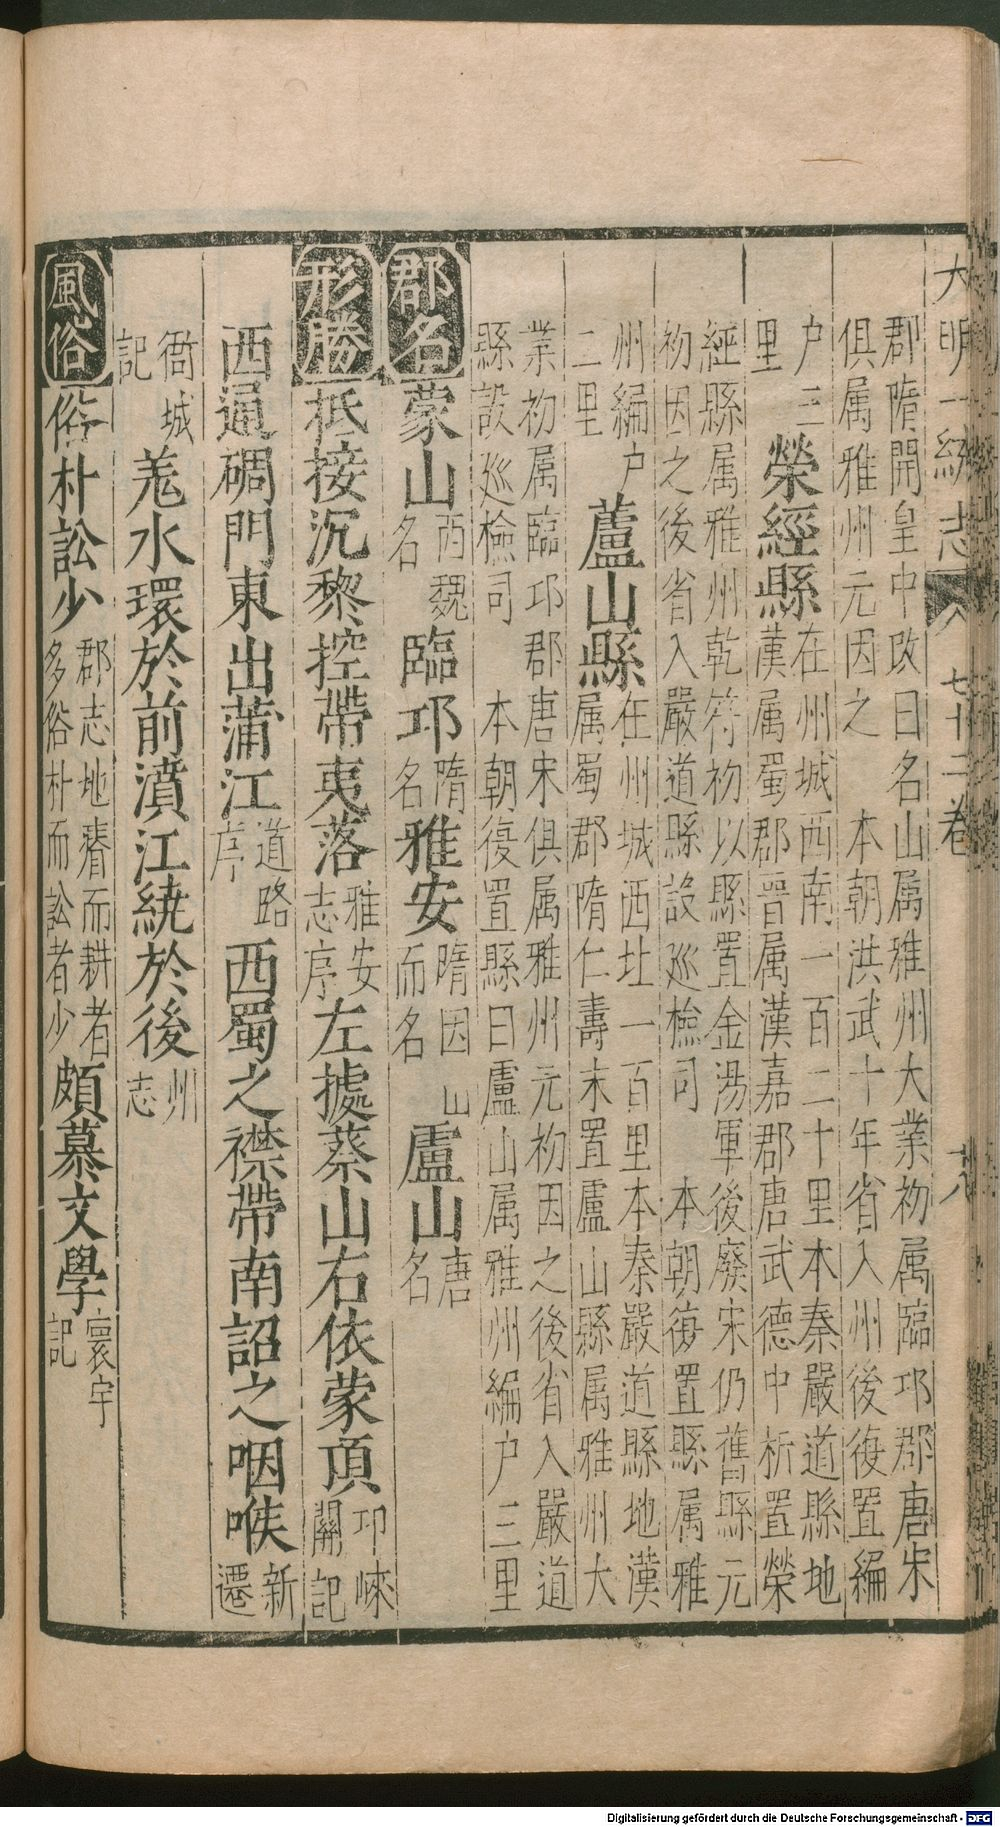 大明一統志 八 七十二卷 十八
郡隋開皇中改曰名山属雅州大業初属臨邛郡唐宋
俱属雅州元因之 本朝洪武十年省入州後復置編
户三
里
榮經縣
在州城西南一百二十里本秦嚴道縣地
漢属蜀郡晉属漢嘉郡唐武德中析置榮
經縣属雅州乾符初以縣置金湯軍後廢宋仍舊縣元
初因之後省入嚴道縣設巡檢司 本朝復置縣属雅
州編户
二里
蘆山縣
在州城西北一百里本秦嚴道縣地漢
属蜀郡隋仁壽末置盧山縣属雅州大
業初属臨邛郡唐宋俱属雅州元初因之後省入嚴道
縣設巡檢司 本朝復置縣曰盧山属雅州編户三里
郡名
蒙山
西魏
名
臨邛
隋
名
雅安
隋因山
而名
盧山
唐
名
形勝
抵接沉黎控帶夷落
雅安
志序
左據蔡山右依蒙頂
邛崍
關記
西通碉門東出蒲江
道路
序
西蜀之襟帶南詔之咽喉
新
遷
衙城
記
羗水環於前濆江繞於後
州
志
風俗
俗朴訟少
郡志地瘠而耕者
多俗朴而訟者少
頗慕文學
寰宇
記
Digitalisierung gefördert durch die Deutsche Forschungsgemeinschaft - DFG